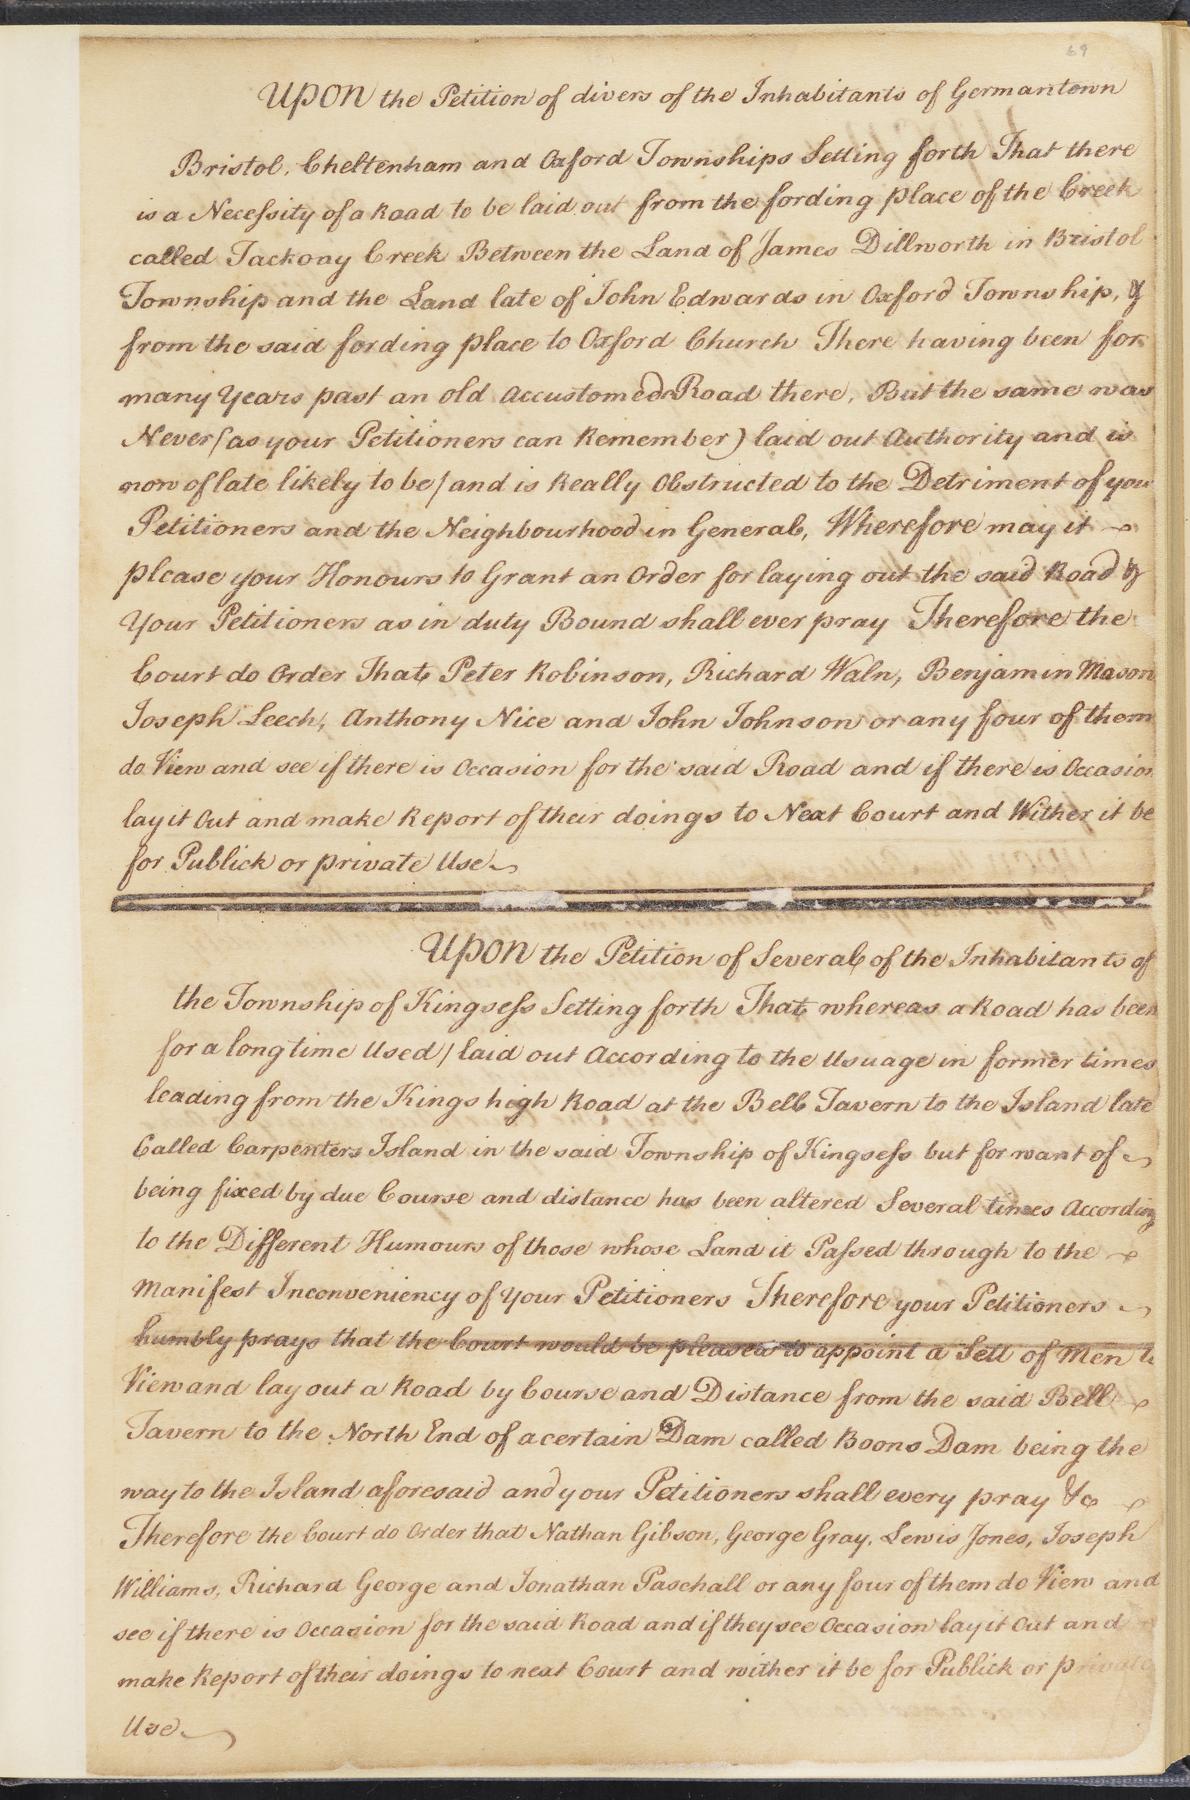 69
UPON the Petition of divers of the Inhabitants of Germantown
Bristol, Cheltenham and Oxford Townships Setting forth That there
is a Necessity of a Road to be laid out from the fording place of the Creek
called Tackony Creek Between the Land of James Dillworth in Bristol
Township and the Land late of John Edwards in Oxford Township, &
from the said fording place to Oxford Church There having been for
many Years past an old accustomed Road there, But the same was
Never (as your Petitioners can Remember) laid out Authority and is
now of late likely to be / and is Really Obstructed to the Detriment of your
Petitioners and the Neighbourhood in General, Wherefore may it
please your Honours to Grant an Order for laying out the said Road &
Your Petitioners as in duty Bound shall ever pray Therefore the
Court do Order That Peter Robinson, Richard Waln, Benjamin Mason
Joseph Leech, Anthony Nice and John Johnson or any four of them
do View and see if there is Occasion for the said Road and if there is Occasion
lay it Out and make Report of their doings to Next Court and Wither it be
for Publick or private Use
UPON the Petition of Several of the Inhabitants of
the Township of Kingsess Setting forth That whereas a Road has been
for a long time Used / laid out According to the Usuage in former times
leading from the Kings high Road at the Bell Tavern to the Island late
Called Carpenters Island in the said Township of Kingsess but for want of
being fixed by due Course and distance has been altered Several times According
to the Different Humours of those whose Land it Passed through to the
Manifest Inconveniency of Your Petitioners Therefore your Petitioners
humbly prays that the Court would be pleased to appoint a Sett of Men to
View and lay out a Road by Course and Distance from the said Bell
Tavern to the North End of a certain Dam called Boons Dam being the
way to the Island aforesaid and your Petitioners shall every pray &c
Therefore the Court do Order that Nathan Gibson, George Gray, Lewis Jones, Joseph
Williams, Richard George and Jonathan Paschall or any four of them do View and
see if there is Occasion for the said Road and if they see Occasion lay it Out and
make Report of their doings to next Court and wither it be for Publick or private
Use